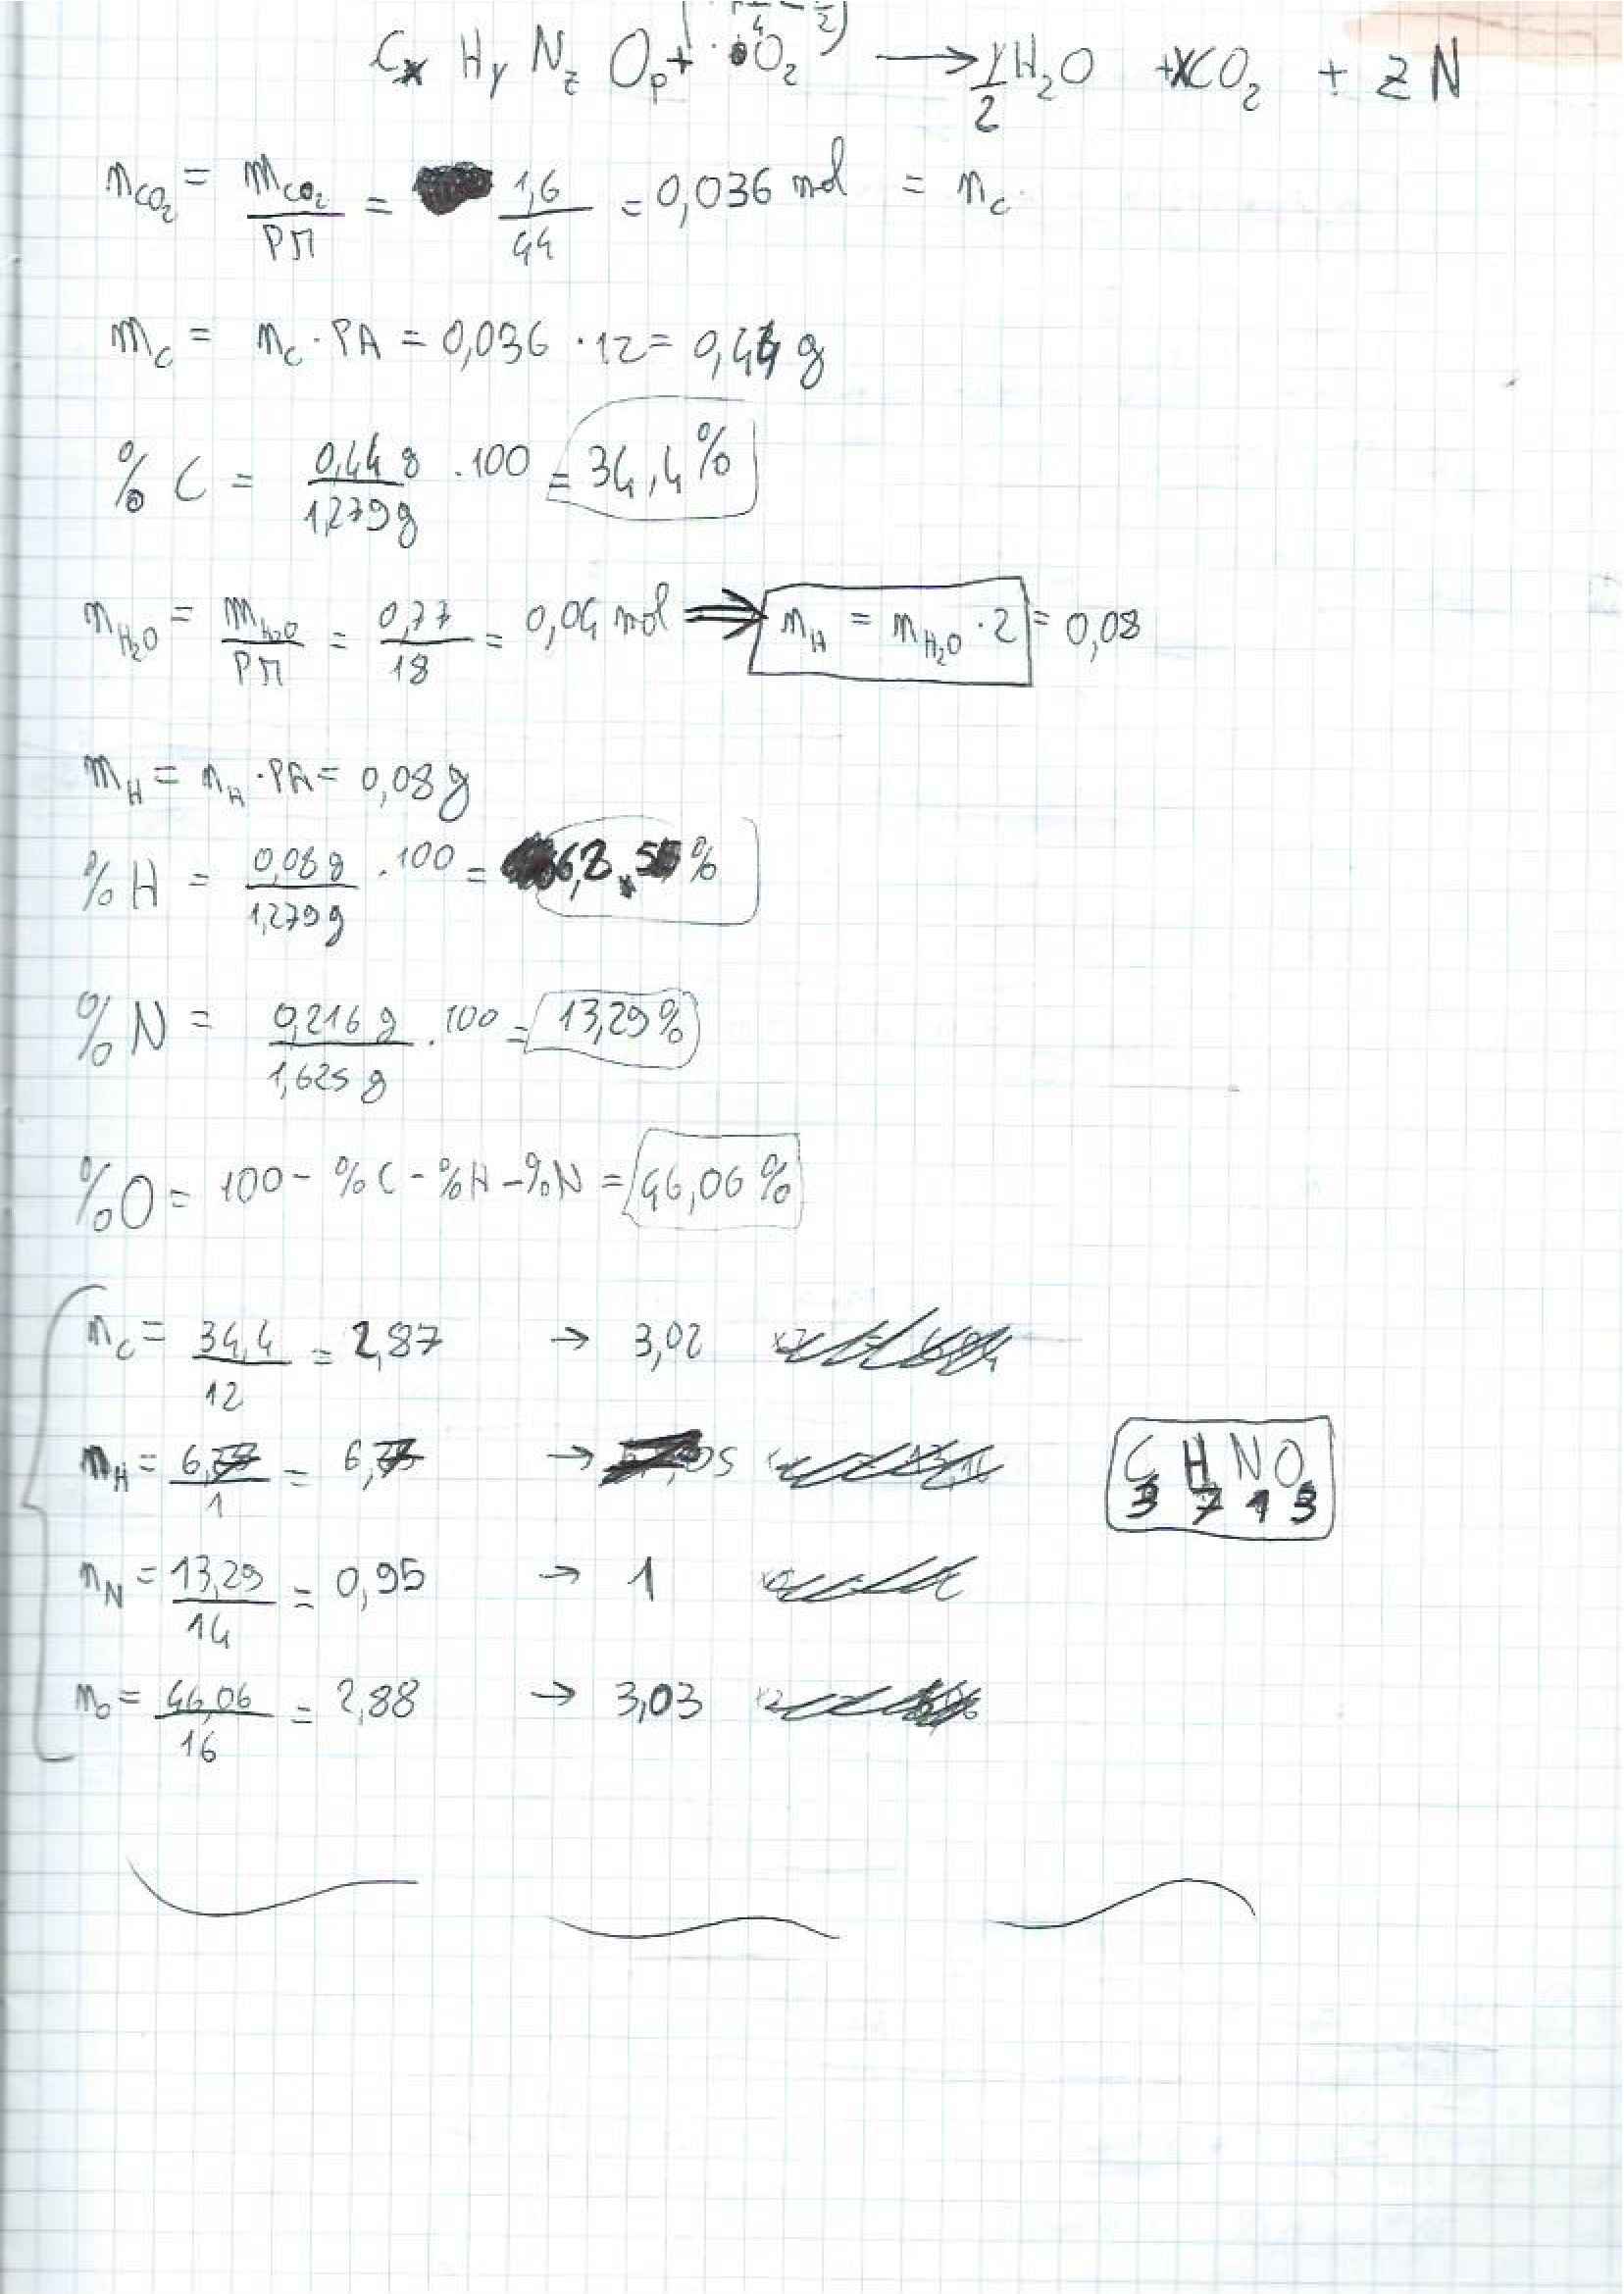 Cx Hy Nz Op + O2 → y/2 H2O + xCO2 + z N
nCO2 = mCO2/PM = 1,6/44 = 0,036 mol = nC
mC = nC · PA = 0,036 · 12 = 0,44 g
% C = 0,44 g/1,279 g · 100 = 34,4 %
nH2O = mH2O/PM = 0,77/18 = 0,04 mol ⇒ nH = nH2O · 2 = 0,08
mH = nH · PA = 0,08 g
% H = 0,08 g/1,279 g · 100 = %
% N = 0,216 g/1,625 g · 100 = 13,29 %
% O = 100 - % C - % H - % N = 46,06 %
nC = 34,4/12 = 2,87 → 3,02
nH = /1 = →
C3 H7 N1 O3
nN = 13,29/14 = 0,95 → 1
nO = 46,06/16 = 2,88 → 3,03